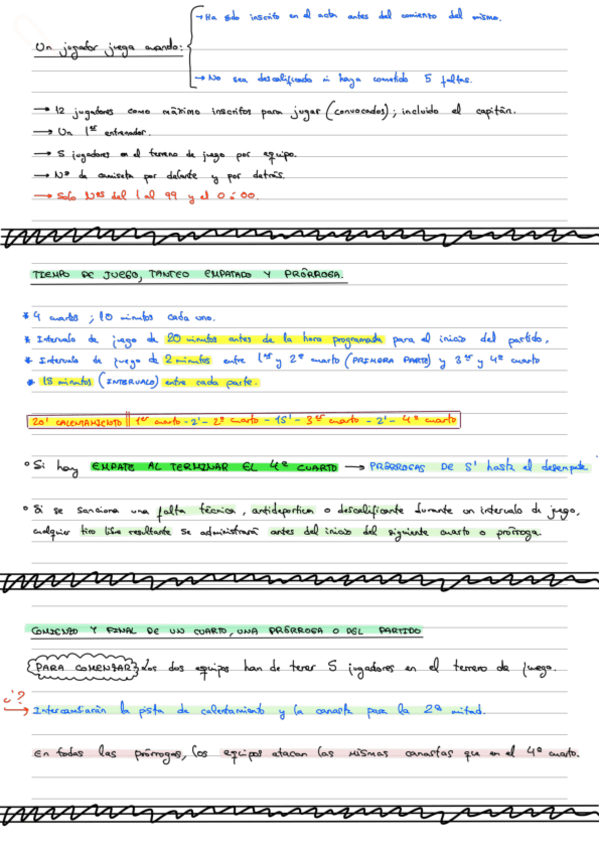 → Ha sido inscrito en el acta antes del comienzo del mismo.
Un jugador juega cuando:
→ No sea descalificado ni haya cometido 5 faltas.
→ 12 jugadores como máximo inscritos para jugar (convocados); incluido el capitán.
→ Un 1er entrenador.
→ 5 jugadores en el terreno de juego por equipo.
→ Nº de camiseta por delante y por detrás.
→ Solo Nos del 1 al 99 y el 0 ó 00.
TIEMPO DE JUEGO, TANTEO EMPATADO Y PRÓRROGA.
* 4 cuartos; 10 minutos cada uno.
* Intervalo de juego de 20 minutos antes de la hora programada para el inicio del partido.
* Intervalo de juego de 2 minutos entre 1er y 2º cuarto (PRIMERA PARTE) y 3er y 4º cuarto
* 15 minutos (INTERVALO) entre cada parte.
20' CALENTAMIENTO || 1er cuarto - 2' - 2º cuarto - 15' - 3er cuarto - 2' - 4º cuarto
º Si hay EMPATE AL TERMINAR EL 4º CUARTO → PRÓRROGAS DE 5' hasta el desempate
º Si se sanciona una falta técnica, antideportiva o descalificante durante un intervalo de juego,
cualquier tiro libre resultante se administrará antes del inicio del siguiente cuarto o prórroga.
COMIENZO Y FINAL DE UN CUARTO, UNA PRÓRROGA O DEL PARTIDO
PARA COMENZAR Los dos equipos han de tener 5 jugadores en el terreno de juego.
¿?
→ Intercambiarán la pista de calentamiento y la canasta para la 2ª mitad.
En todas las prórrogas, los equipos atacan las mismas canastas que en el 4º cuarto.